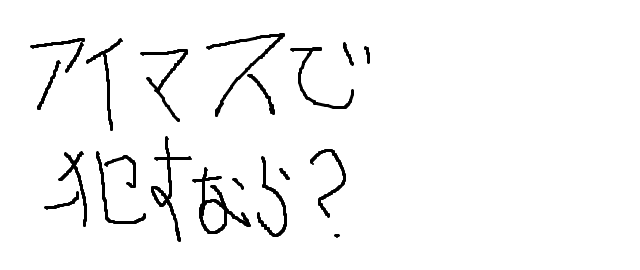 アイマスで
犯すなら?